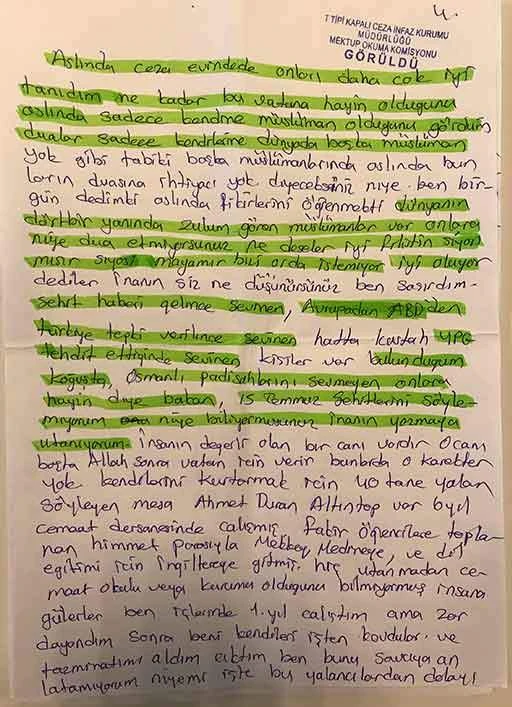 4.
T TİPİ KAPALI CEZA İNFAZ KURUMU
MÜDÜRLÜĞÜ
MEKTUP OKUMA KOMİSYONU
GÖRÜLDÜ
Aslında ceza evindede onları daha çok iyi
tanıdım ne kadar bu vatana hayin olduguna
aslında sadece kendine müslüman olduguna gördüm
dualar sadece kendilerine dünyada başka müslüman
yok gibi tabiki başka müslümanlarında aslında bun
ların duasına ihtiyacı yok diyeceksiniz niye ben bir-
gün dedimki aslında fikirlerini öğrenmekti dünyanın
dört bir yanında zulum gören müslümanlar var onlara
niye dua etmiyorsunuz ne deseler iyi Filistin siyasi
mısır siyasi mayamır bile orda istemiyor iyi oluyor
dediler inanın siz ne düşünürsünüz ben şaşırdım-
şehit haberi gelince sevinen, Avrupadan ABD'den
türkiye tepki verilince sevinen hatta küstah YPG
tehdit ettiğinde sevinen kişiler var bulundugum
koğuşta, Osmanlı padişahlarını sevmeyen onlara
hayin diye bakan, 15 Temmuz Şehitlerini söyle-
miyorum niye biliyormusunuz inanın yazmaya
utanıyorum. İnsanın değerli olan bir canı vardır O canı
başta Allah sonra vatan için verir bunlarda o karakter
yok kendilerini kurtarmak için 40 tane yalan
söyleyen mesa Ahmet Duran Altıntop var 8 yıl
cemaat dersanesinde çalışmış fakir öğrencilere topla-
nan himmet parasıyla Mekkey Medineye, ve dil
egitimi için İngiltereye gitmiş. hiç utanmadan ce-
maat okulu veya kurumu olduguna bilmiyormuş insana
gülerler ben içlerinde 1. yıl çalıştım ama zor
dayandım sonra beni kendileri işten kovdular. ve
tazminatımı aldım çıktım ben bunu savcıya an
latamıyorum niyemi işte bu yalancılardan dolayı